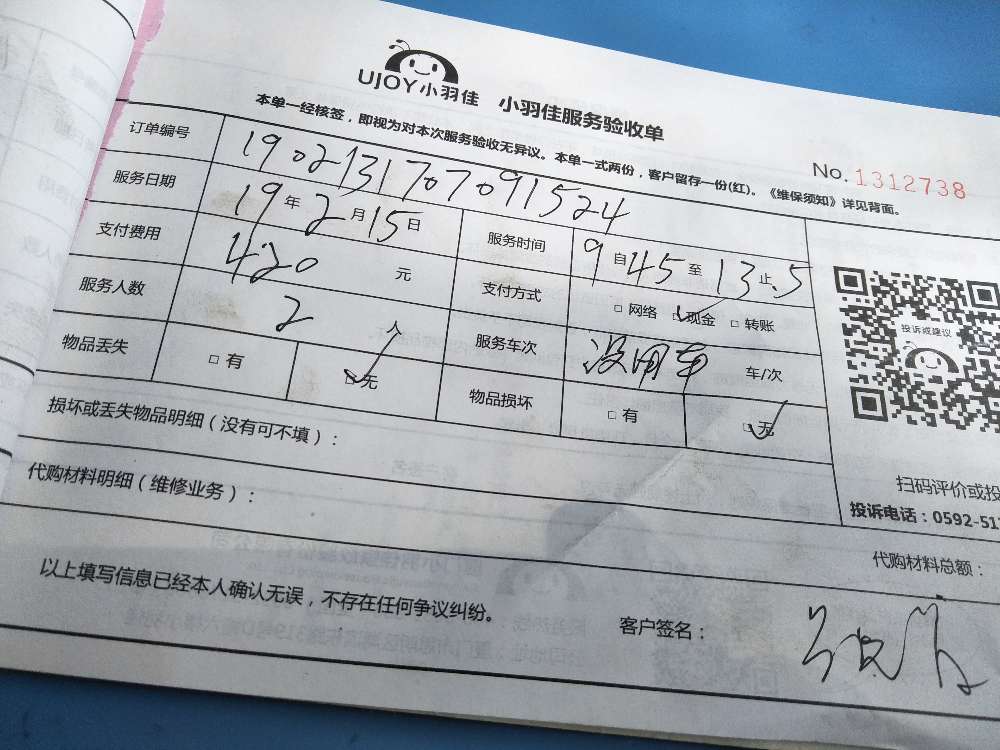 UJOY小羽佳 小羽佳服务验收单
本单一经核签，即视为对本次服务验收无异议。本单一式两份，客户留存一份(红)。《维保须知》详见背面。
No.1312738
订单编号 1902131707091524
服务日期 19年2月15日 服务时间 9自45至13止.5
支付费用 420元 支付方式 □网络 ☑现金 □转账
服务人数 2人 服务车次 没用车 车/次
物品丢失 □有 ☑无 物品损坏 □有 ☑无
投诉或建议
损坏或丢失物品明细（没有可不填）：
扫码评价或投
代购材料明细（维修业务）：
投诉电话：0592-51
代购材料总额：
以上填写信息已经本人确认无误，不存在任何争议纠纷。
客户签名：